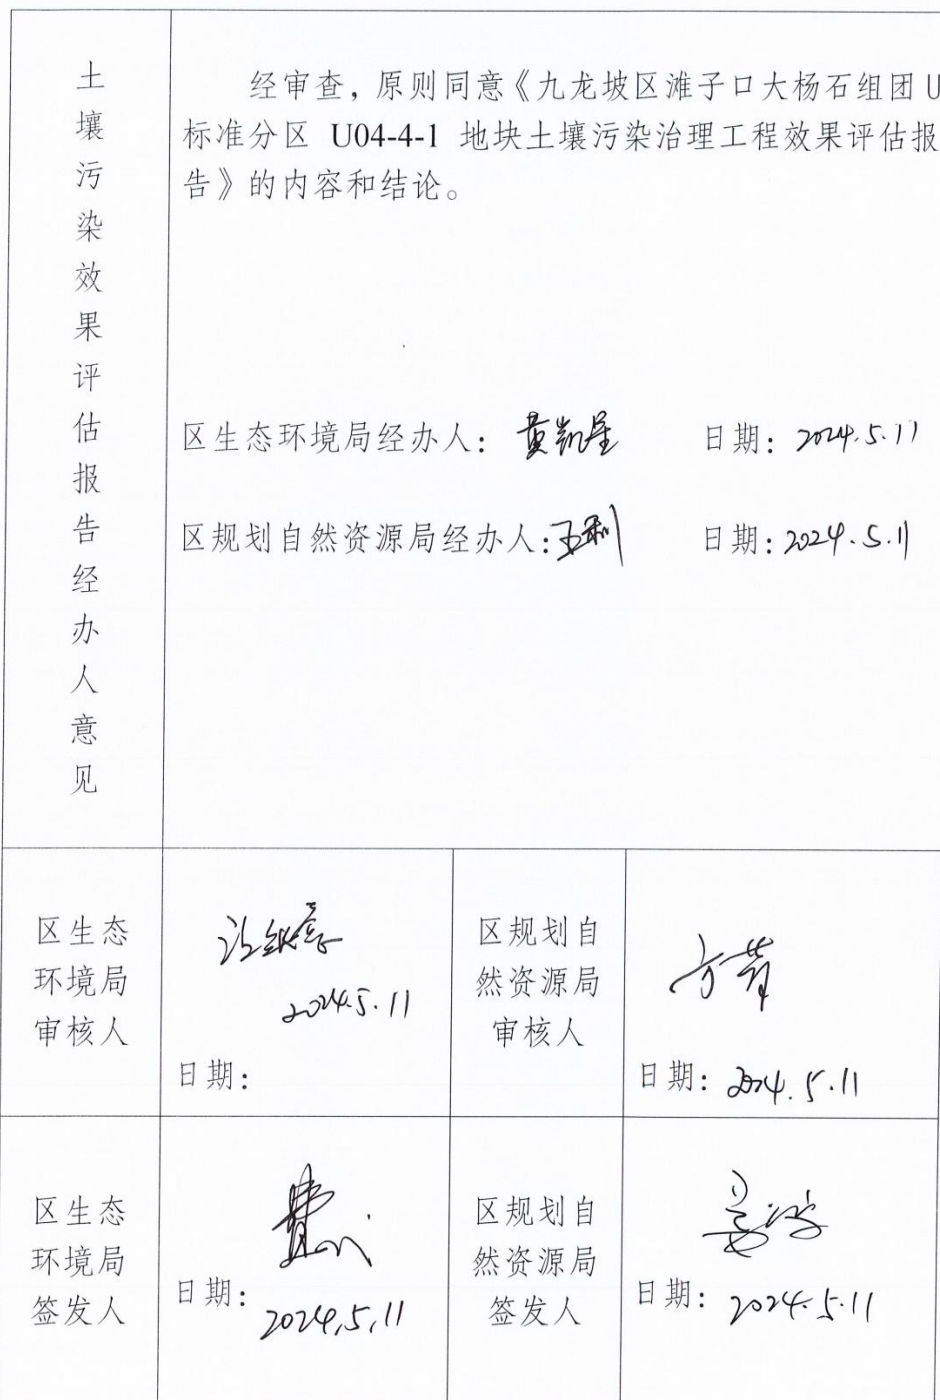 土
壤
污
染
效
果
评
估
报
告
经
办
人
意
见
经审查，原则同意《九龙坡区滩子口大杨石组团 U
标准分区 U04-4-1 地块土壤污染治理工程效果评估报
告》的内容和结论。
区生态环境局经办人： 黄凯星 日期： 2024.5.11
区规划自然资源局经办人：王利 日期：2024.5.11
区生态
环境局
审核人
2024.5.11
日期：
区规划自
然资源局
审核人
日期：2024.5.11
区生态
环境局
签发人
日期：
2024.5.11
区规划自
然资源局
签发人
日期：2024.5.11